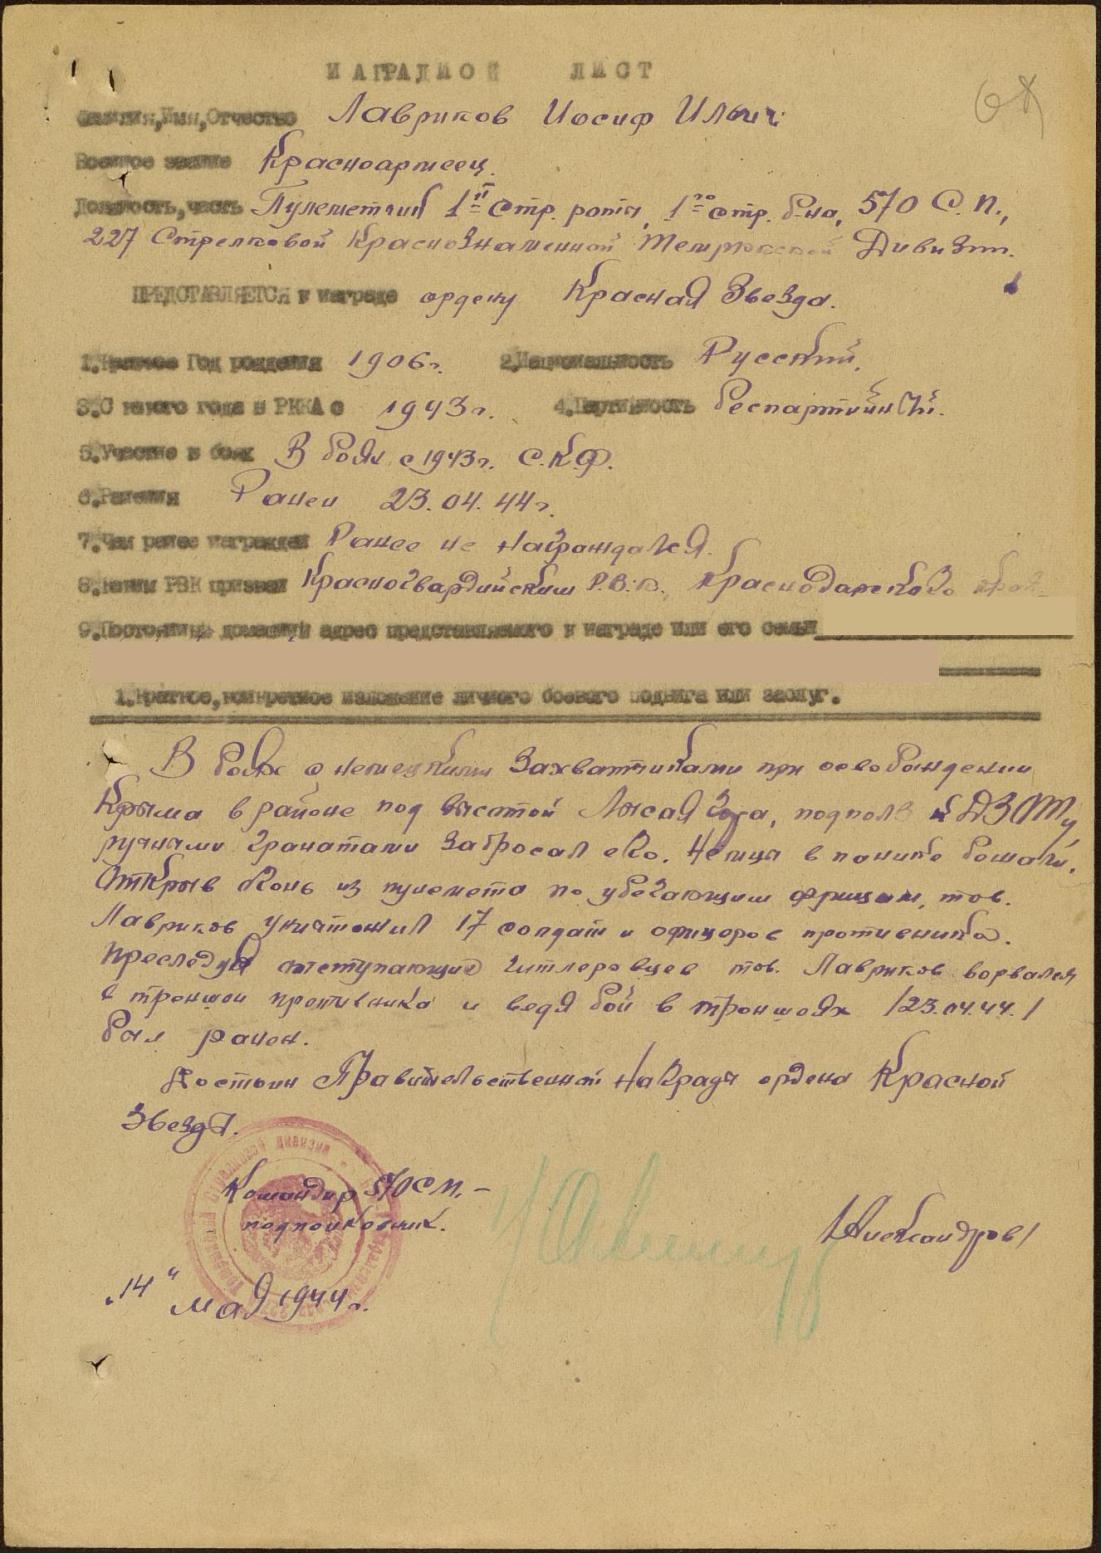 НАГРАДНОЙ ЛИСТ
Фамилия,Имя,Отчество Лавриков Иосиф Ильич
Военное звание Красноармеец.
Должность,часть Пулеметчик 1й Стр. роты, 1го стр. б-на, 570 С.П.,
227 Стрелковой Краснознаменной Темрюкской Дивизии.
ПРЕДСТАВЛЯЕТСЯ к награде ордену Красная Звезда.
1. Год рождения 1906г. 2.Национальность Русский.
3.С какого года в РККА с 1943г. 4.Партийность Беспартийный.
5.Участие в боях В боях с 1943г. С.К.Ф.
6.Ранения Ранен 23.04.44г.
7.Чем ранее награжден Ранее не награждался.
8.Каким РВК призван Красногвардейским Р.В.К., Краснодарского края
9.Постоянный домашний адрес представляемого к награде или его семьи
1.Краткое,конкретное изложение личного боевого подвига или заслуг.
В боях с немецкими захватчиками при освобождении
Крыма в районе под высотой Лысая Гора, подполз к ДЗОТу
ручными гранатами забросал его. Немцы в панике бежали.
Открыв огонь из пулемета по убегающим фрицам, тов.
Лавриков уничтожил 17 солдат и офицеров противника.
Преследуя отступающих гитлеровцев тов. Лавриков ворвался
в траншеи противника и ведя бой в траншеях /23.04.44./
был ранен.
Достоин Правительственной награды ордена Красной
Звезды.
Командир 570 СП. –
подполковник.
/Александров/
"14" мая 1944г.